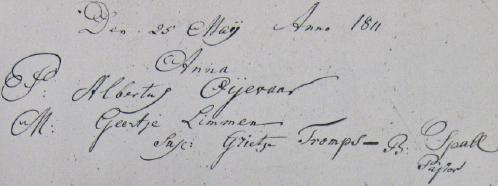 Den 25 Maÿ Anno 1811
Anna
P: Albertus Oijevaar
M: Geertje Limmen
Susc: Grietje Tromps - B: Spall
Pastor